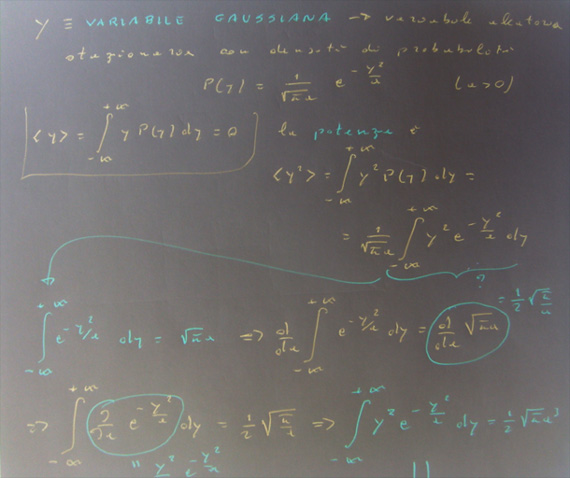 y ≡ VARIABILE GAUSSIANA → variabile aleatoria
stazionaria con densità di probabilità
P(y) = 1/√(πa) e^(-y²/a) (a>0)
⟨y⟩ = ∫_{-∞}^{+∞} y P(y) dy = 0
la potenza è
⟨y²⟩ = ∫_{-∞}^{+∞} y² P(y) dy =
= 1/√(πa) ∫_{-∞}^{+∞} y² e^(-y²/a) dy
?
∫_{-∞}^{+∞} e^(-y²/a) dy = √(πa) ⇒ d/da ∫_{-∞}^{+∞} e^(-y²/a) dy = d/da √(πa) = 1/2 √(π/a)
⇒ ∫_{-∞}^{+∞} ∂/∂a e^(-y²/a) dy = 1/2 √(π/a) ⇒ ∫_{-∞}^{+∞} y² e^(-y²/a) dy = 1/2 √(πa³)
" y²/a² e^(-y²/a)